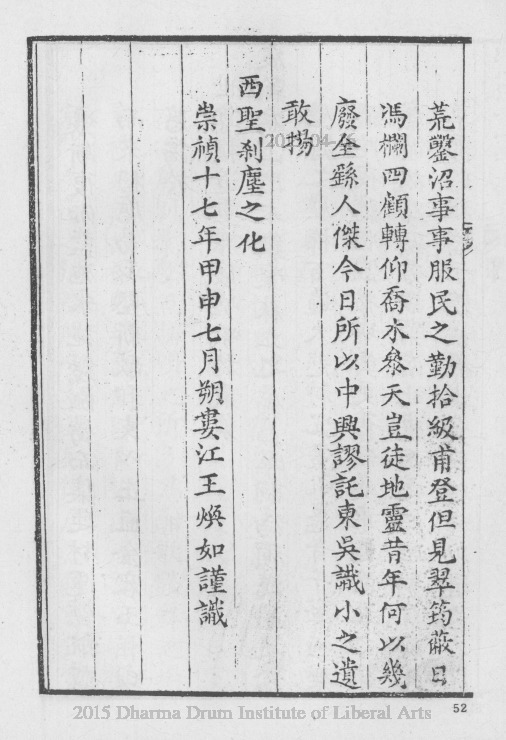 荒鑿沼事事服民之勤拾級甫登但見翠筠蔽日
馮欄四顧轉仰喬木叅天豈徒地靈昔年何以幾
廢全繇人傑今日所以中興謬託東吳識小之遺
敢揚
西聖剎塵之化
崇禎十七年甲申七月朔婁江王煥如謹識
52
2015 Dharma Drum Institute of Liberal Arts